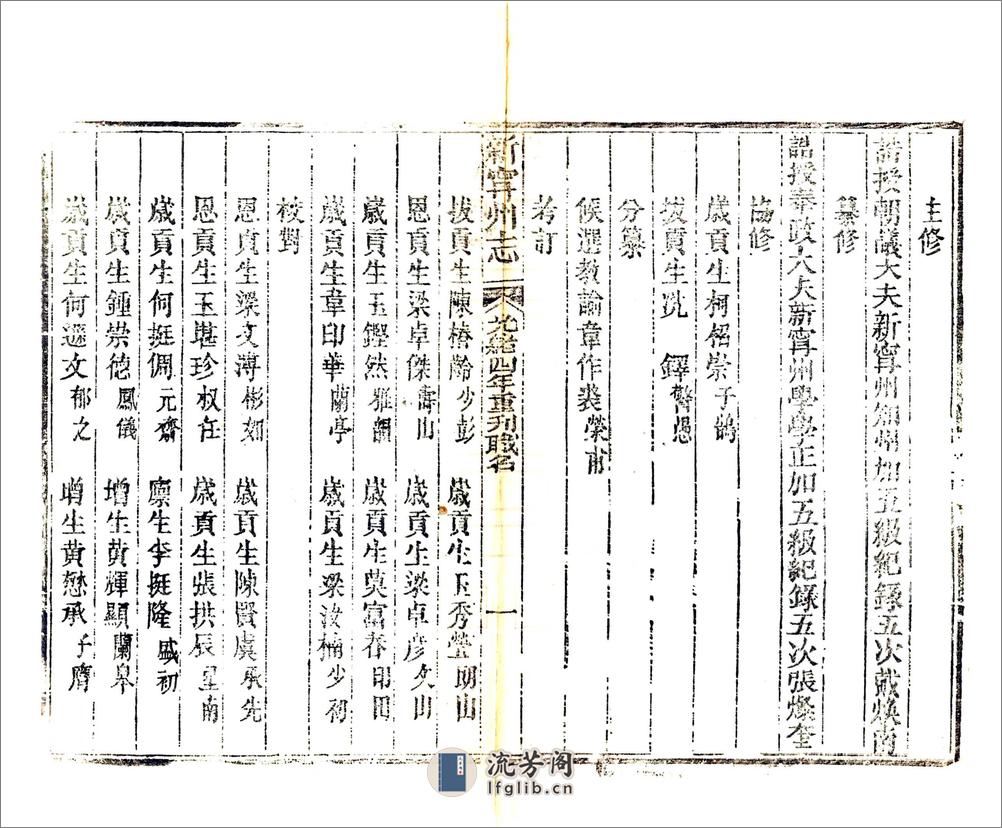 主修
誥授朝議大夫新甯州知州加五級紀錄五次戴煥南
纂修
誥授奉政大夫新甯州學學正加五級紀錄五次張燦奎
協修
歲貢生柯榕崇子鶴
拔貢生 鐸警愚
分纂
候選教諭韋作裘榮甫
考訂
新甯州志 光緒四年重刋職名 一
拔貢生陳椿齡少彭 歲貢生玉秀瑩明山
恩貢生梁卓傑壽山 歲貢生梁卓彦文山
歲貢生玉鏗然雅韻 歲貢生莫富春印田
歲貢生韋印華蘭亭 歲貢生梁汝楠少初
校對
恩貢生梁文溥彬如 歲貢生陳賢虞承先
恩貢生玉堪珍权任 歲貢生張拱辰星南
歲貢生何挺倜元齋 廩生李挺隆盛初
歲貢生鍾崇德鳳儀 增生黃輝顯蘭皋
歲貢生何遜文郁之 增生黃懋承子膺
流芳阁
lfglib.cn